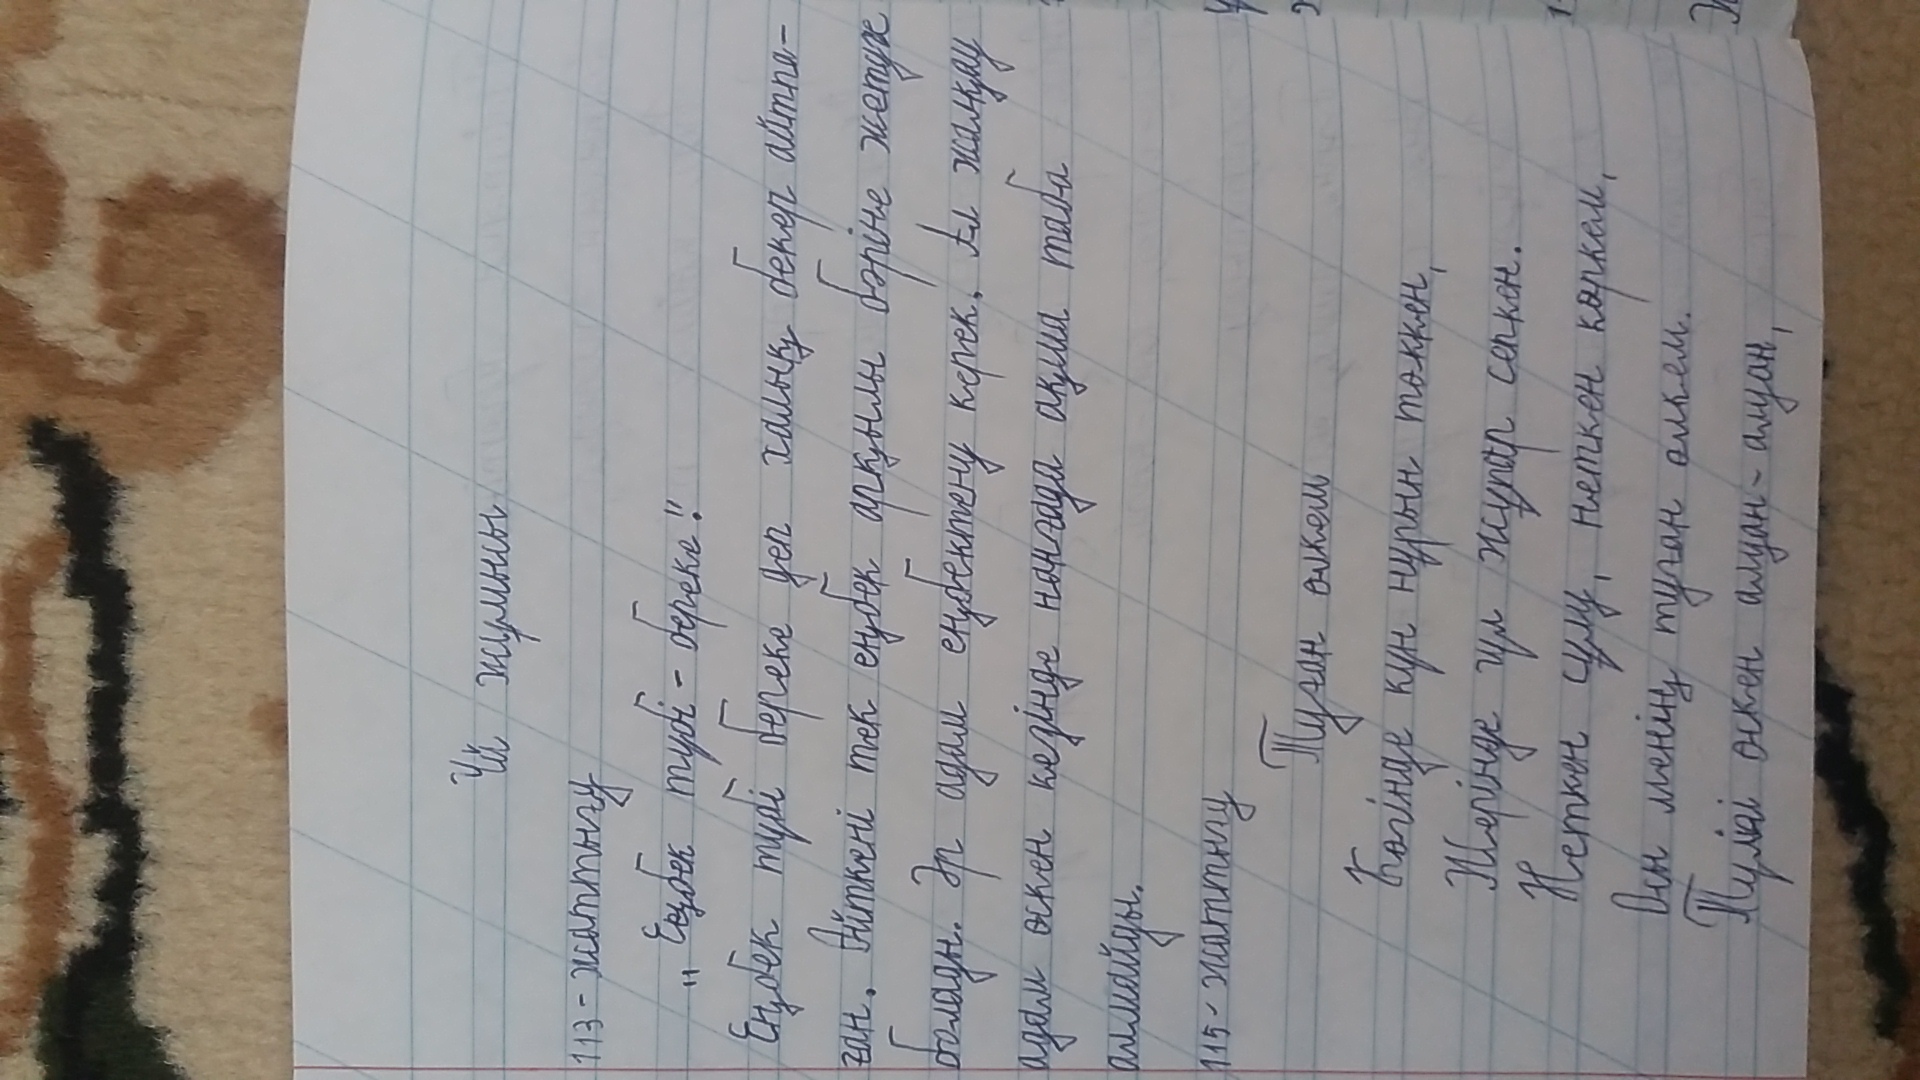 Үй жұмысы
113-жаттығу
"Еңбек түбі - береке."
Еңбек түбі береке деп халық бекер айтпа-
ған. Өйткені тек еңбек арқылы бәріне жетуге
болады. Әр адам еңбектену керек. Ал жалқау
адам өскен кезінде нанғада ақша таба
алмайды.
115-жаттығу
Туған өлкем
Көгінде күн нұрын төккен,
Жерінде гүл жұпар сепкен.
Неткен сұлу, неткен көркем,
Осы менің туған өлкем.
Гүлі өскен алуан-алуан,